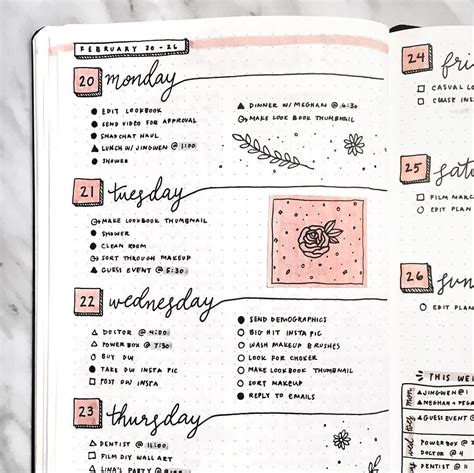 FEBRUARY 20 - 26
20 monday
EDIT LOOKBOOK
SEND VIDEO FOR APPROVAL
SNAPCHAT HAUL
LUNCH W/ JINGWEN @ 1:00
SHOWER
DINNER W/ MEGHAN @ 4:30
MAKE LOOK BOOK THUMBNAIL
21 tuesday
MAKE LOOKBOOK THUMBNAIL
SHOWER
CLEAN ROOM
SORT THROUGH MAKEUP
GUESS EVENT @ 5:30
22 wednesday
DOCTOR @ 4:00
POWERBOX @ 7:30
BUY DW
TAKE DW INSTA PIC
POST DW INSTA
SEND DEMOGRAPHICS
BIG HIT INSTA PIC
WASH MAKEUP BRUSHES
LOOK FOR CHOKER
MAKE LOOKBOOK THUMBNAIL
SORT MAKEUP
REPLY TO EMAILS
23 thursday
DENTIST @ 11:00
FILM DIY WALL ART
LINA'S PARTY @
24 fri
CASUAL LO
CHASE INS
25 satu
FILM MARC
EDIT PLAN
26 sun
EDIT PLAN
THIS WE
mon
JINGWEN @ 1
MEGHAN @
tues
GUESS EVENT @
wed
POWERBOX @
DOCTOR @ 4
DENTIST @ 11